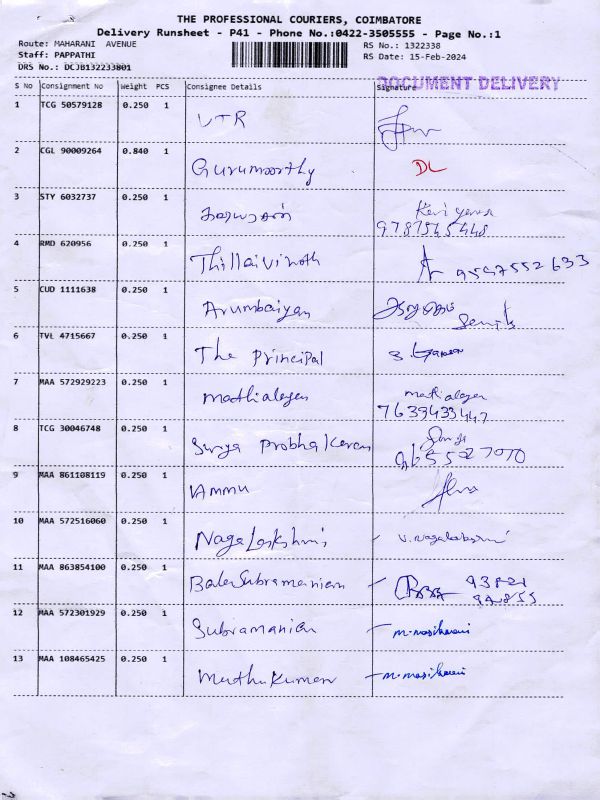 THE PROFESSIONAL COURIERS, COIMBATORE
Delivery Runsheet - P41 - Phone No.:0422-3505555 - Page No.:1
Route: MAHARANI AVENUE RS No.: 1322338
Staff: PAPPATHI RS Date: 15-Feb-2024
DRS No.: DCJB132233801
DOCUMENT DELIVERY
S No Consignment No Weight PCS Consignee Details Signature
1 TCG 50579128 0.250 1 VTR
2 CGL 90009264 0.840 1 Gurumoorthy DL
3 STY 6032737 0.250 1
4 RMD 620956 0.250 1 Thillaivinoth 9597552633
5 CUD 1111638 0.250 1 Arumbaiyan
6 TVL 4715667 0.250 1 The Principal
7 MAA 572929223 0.250 1 mathialagen mathialagen
7639433447
8 TCG 30046748 0.250 1 Surya Probhakaran
9655027070
9 MAA 861108119 0.250 1 Ammu
10 MAA 572516060 0.250 1 NagaLakshmi V. Nagalakshmi
11 MAA 863854100 0.250 1 BalaSubramanian
12 MAA 572301929 0.250 1 Subramanian
13 MAA 108465425 0.250 1 Muthukumar